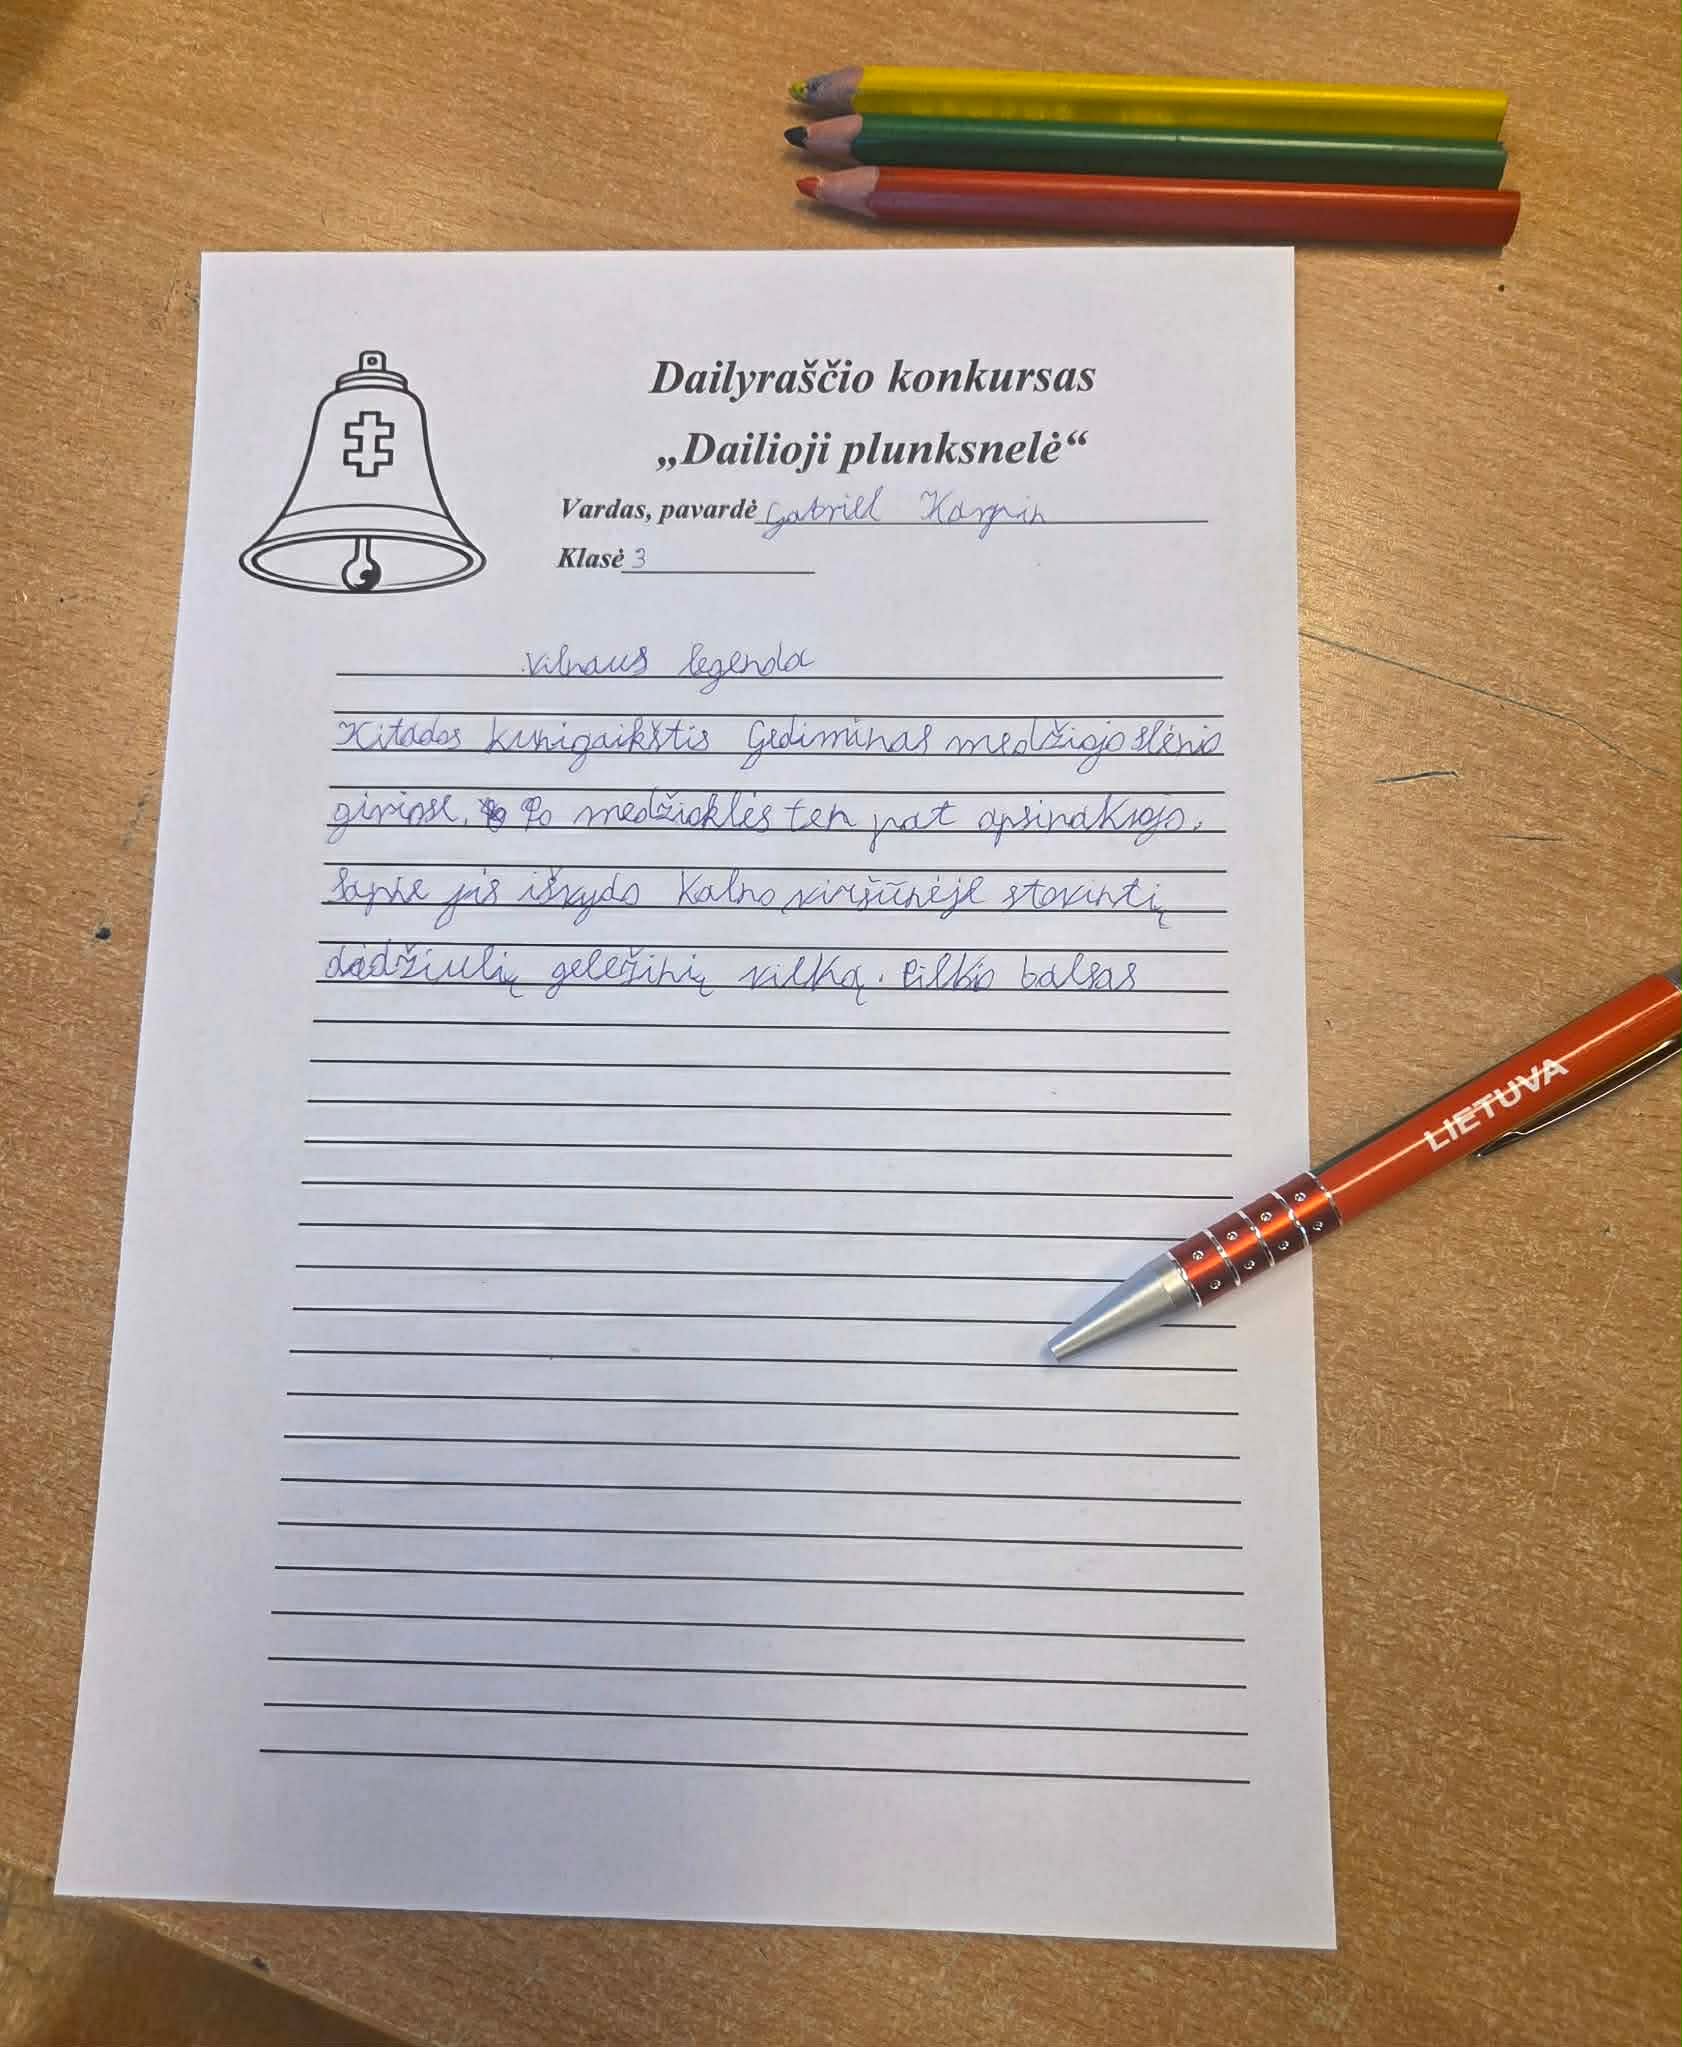 Dailyraščio konkursas
„Dailioji plunksnelė“
Vardas, pavardė Gabriel Karpin
Klasė 3
Vilnaus legenda
Kitados kunigaikštis Gediminas medžiojo slėnio
giriose. Po medžioklės ten pat apsinakvojo.
Sapne jis išvydo Kalno viršūnėje stovintį
didžiulį geležinį vilką. balsas
LIETUVA